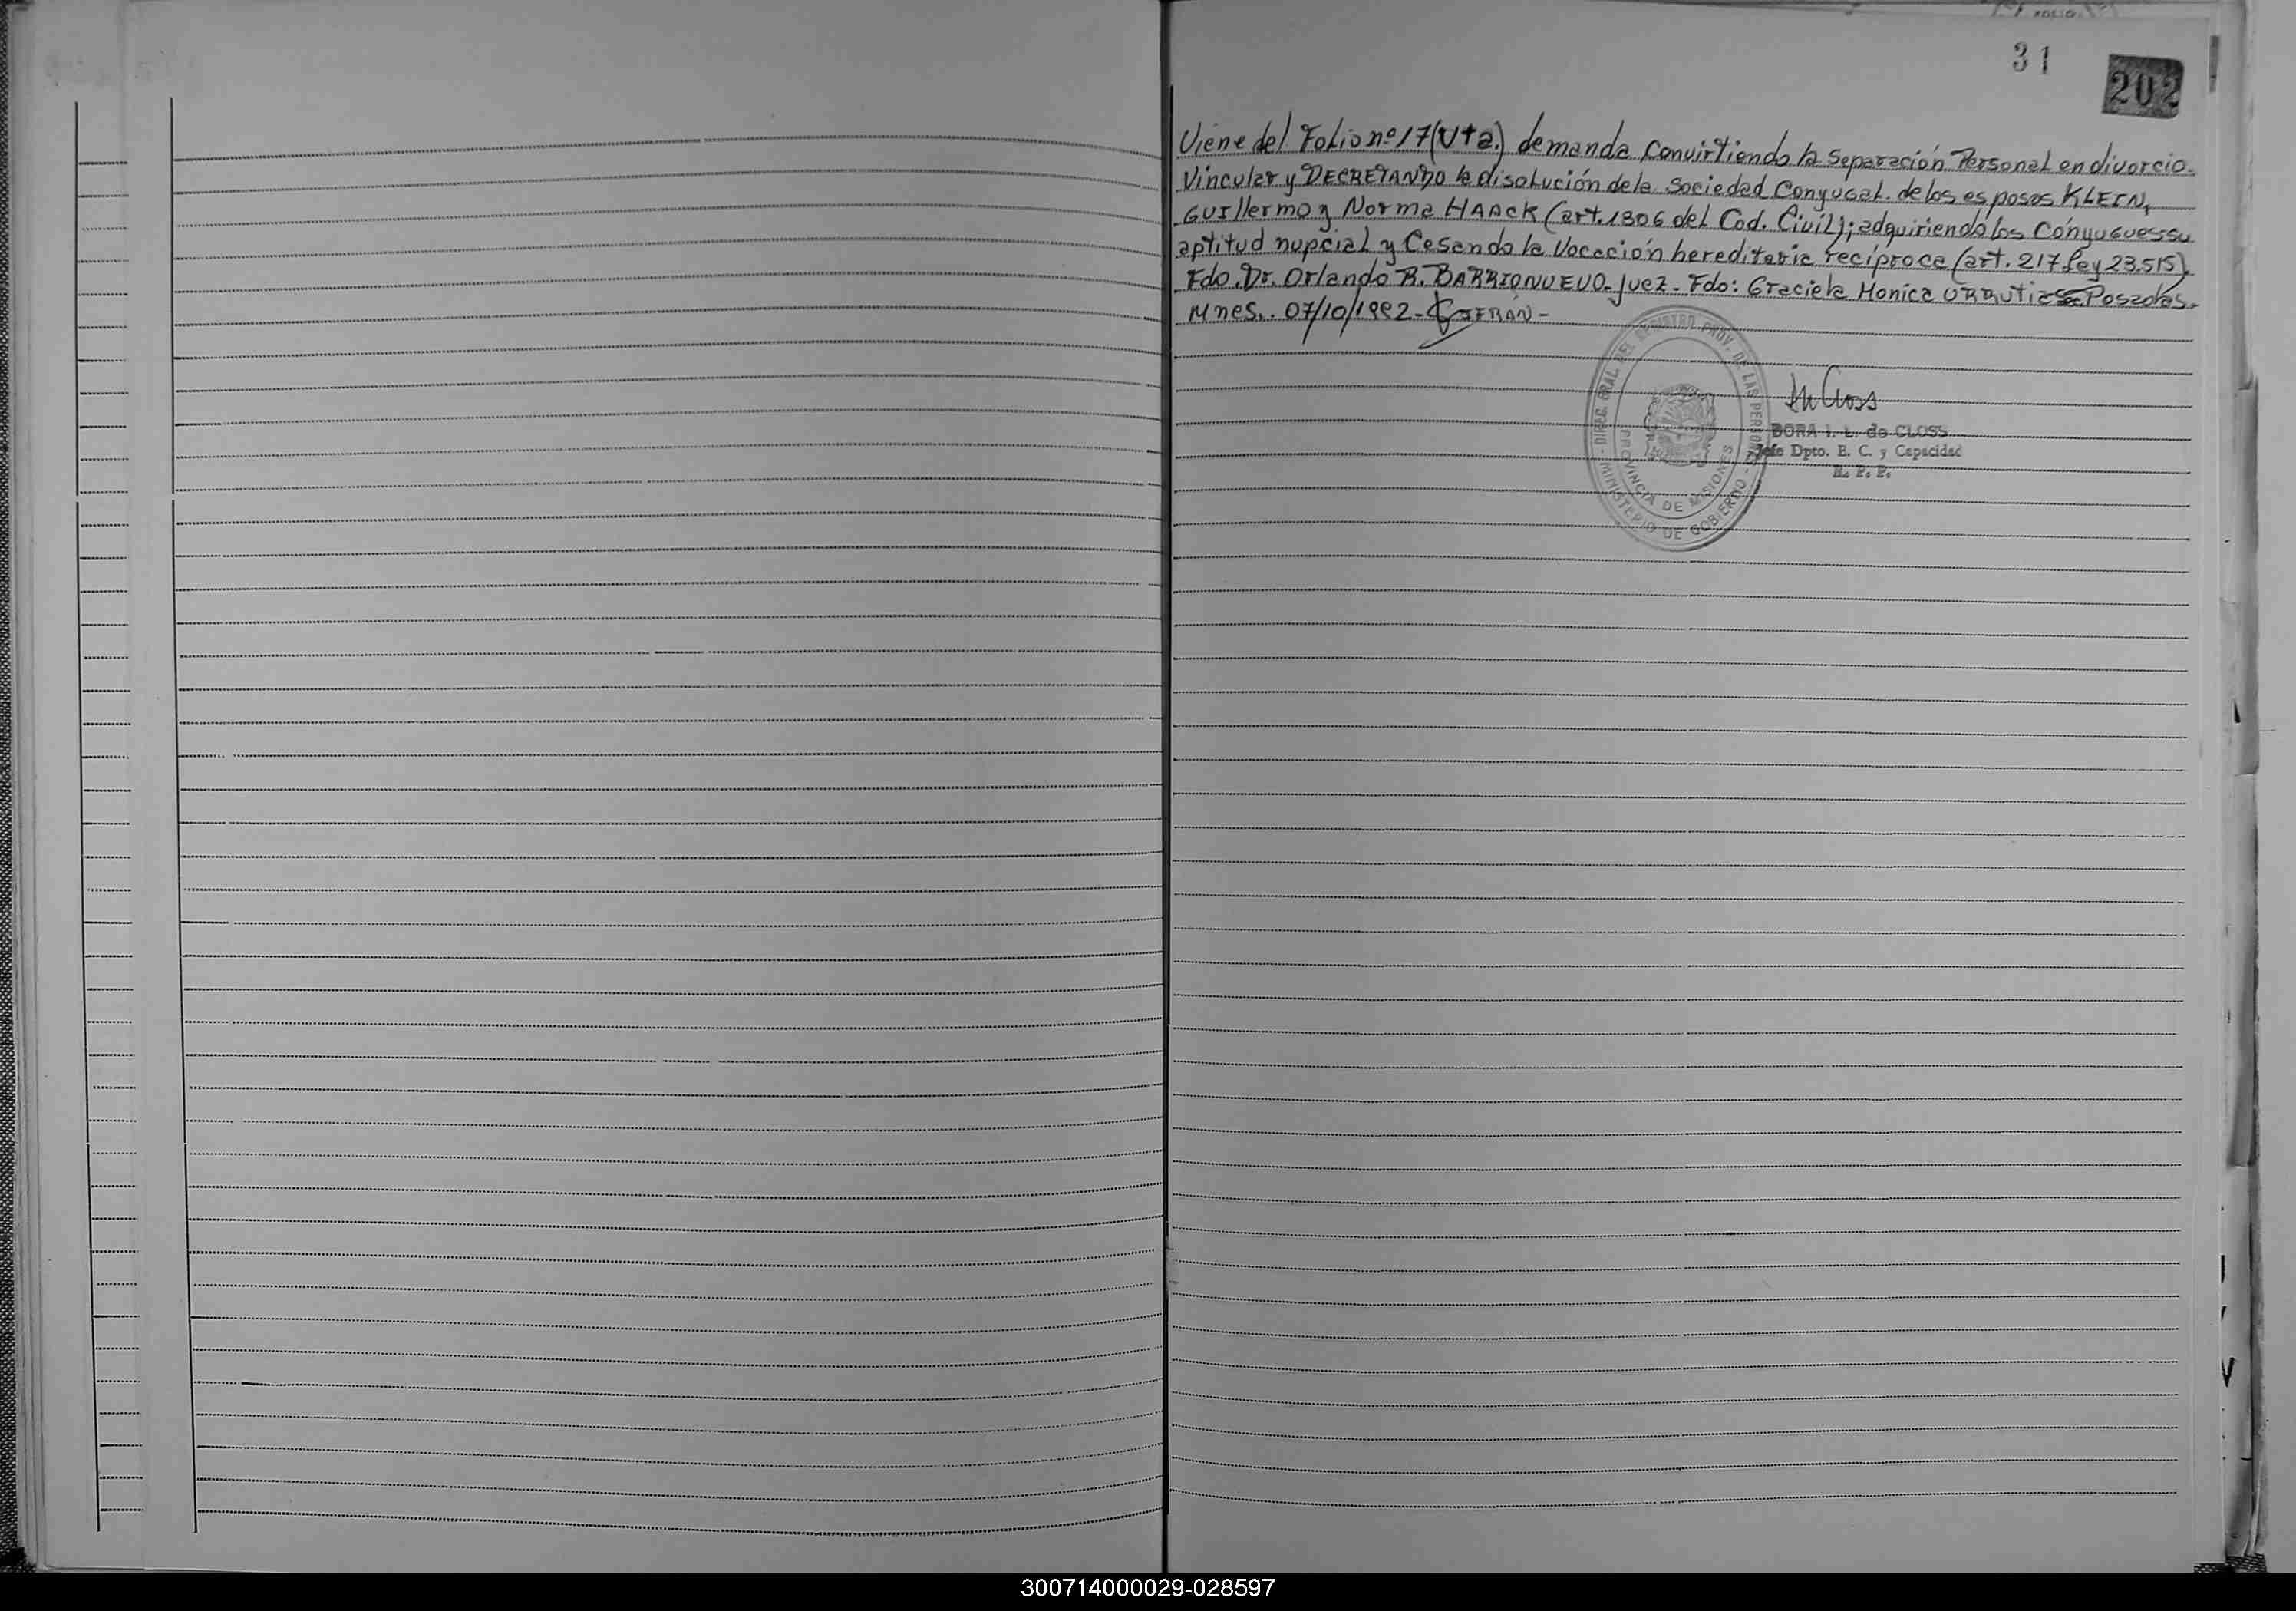 31
202
Viene del Folio nº 17 (Vta.) demanda convirtiendo la Separación Personal en divorcio.
Vincular y DECRETANDO la disolución de la Sociedad Conyugal. de los esposos KLEIN,
Guillermo y Norma HAACK (art. 1306 del Cod. Civil); adquiriendo los Cónyugues su
aptitud nupcial y Cesando la Vocación hereditaria recíproca (art. 217 Ley 23.515).
Fdo. Dr. Orlando R. BARRIONUEVO - Juez - Fdo: Graciela Monica URRUTIA Sec. Posadas.
Mnes.. 07/10/1992 -
DIREC. GRAL. DEL REGISTRO PROV. DE LAS PERSONAS
PROVINCIA DE MISIONES
- MINISTERIO DE GOBIERNO -
DORA I. L. de CLOSS
Jefe Dpto. E. C. y Capacidad
R. P. P.
300714000029-028597